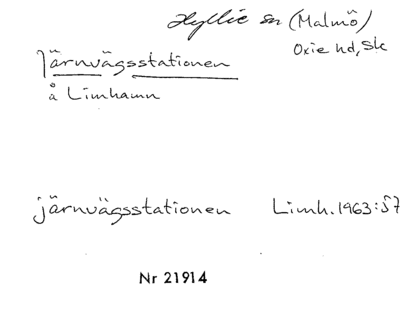 Hyllie sn (Malmö)
Oxie hd, Sk
Järnvägsstationen
å Limhamn
järnvägsstationen Limh. 1963:57
Nr 21914